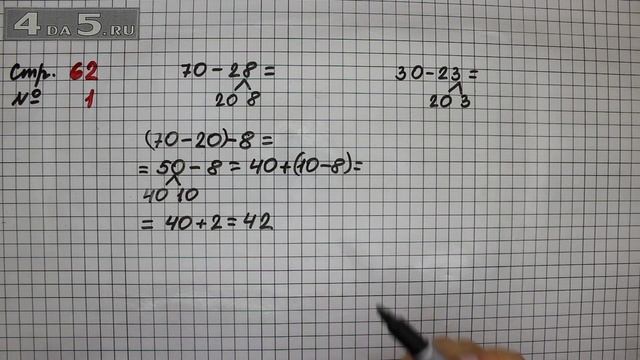 4DA5.RU
Стр. 62 70-28= 30-23=
№ 1 20 8 20 3
(70-20)-8=
= 50-8 = 40+(10-8)=
40 10
= 40+2=42